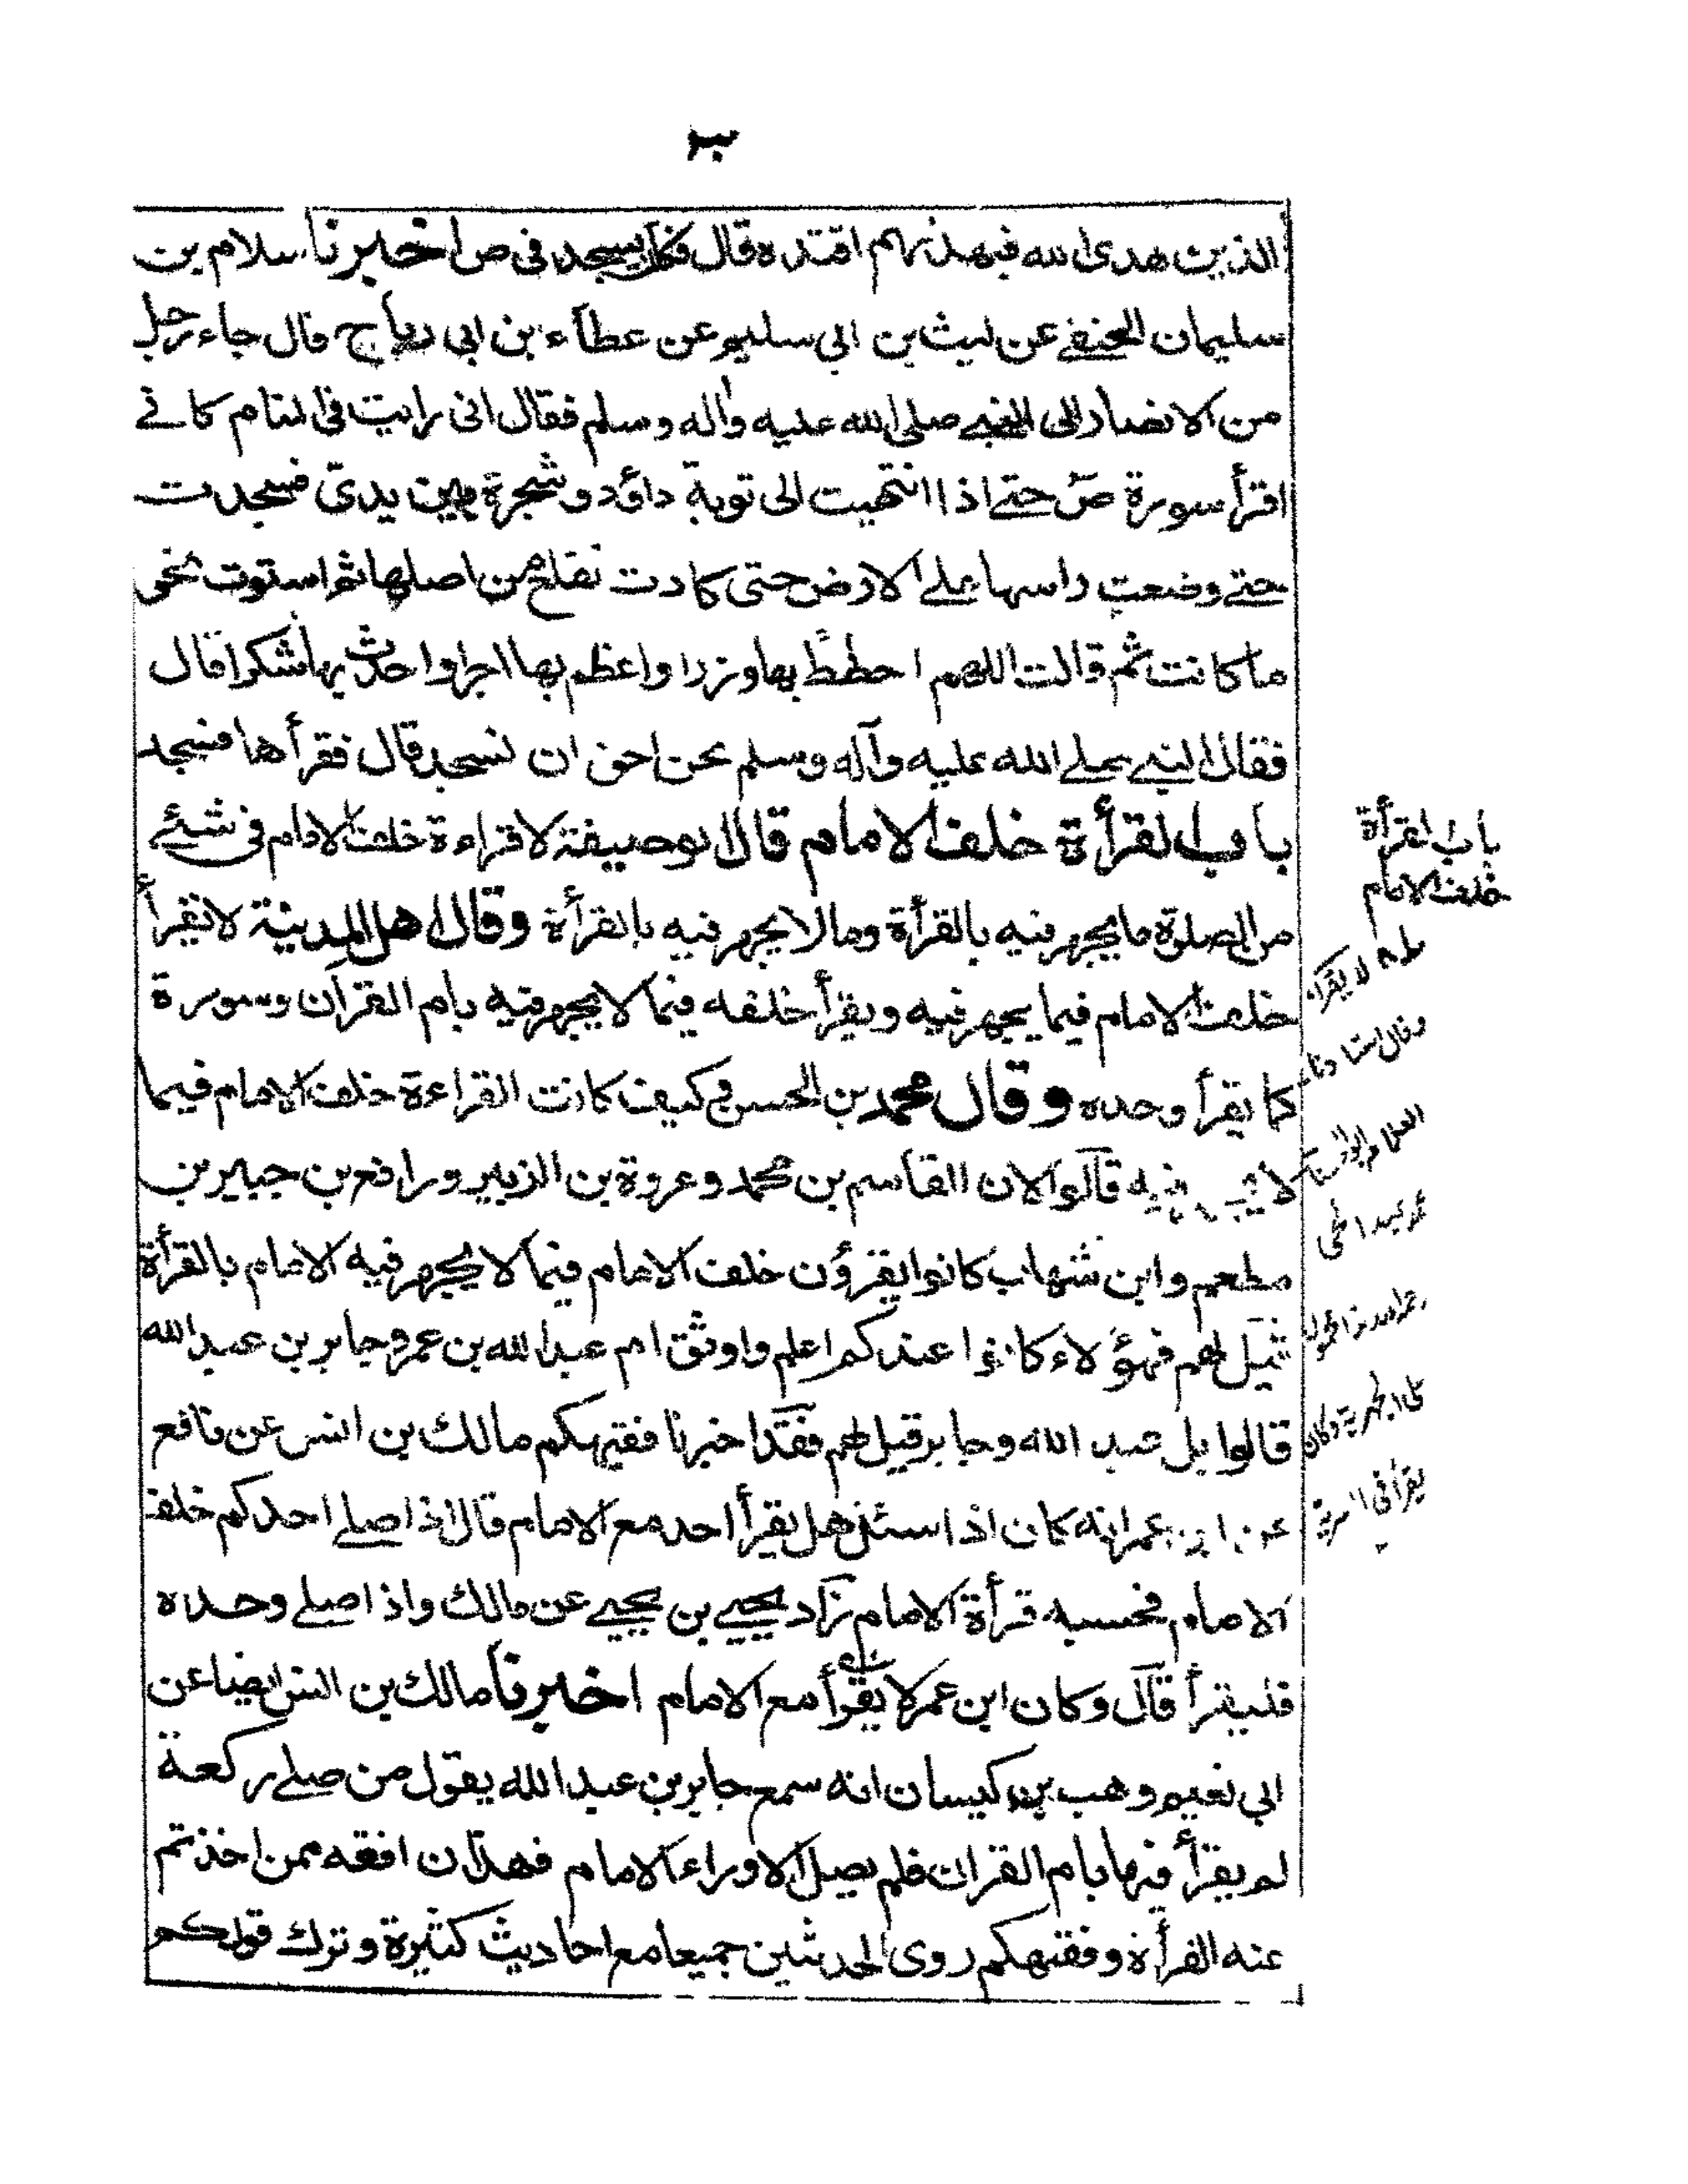 الذين هدى الله فبهدىهم اقتده قال فكان يسجد في ص اخبرنا سلام بن
سليمان الحنفے عن ليث بن ابي سليم عن عطآء بن ابي رباح قال جاء رجل
من الانصار الى النبے صلى الله عليه وآله وسلم فقال انى رايت فى المنام كانے
اقرأ سورة صٓ حتے اذا انتهيت الى توبة داؤد وشجرة بين يدىّ فسجدت
حتے وضعت راسها علے الارض حتى كادت تقلع من اصلها ثم استوت نحو
ما كانت ثم قالت اللهم احطط بها وزرا واعظم بها اجرا واحدث بها شكرا قال
فقال النبے صلے الله عليه وآله وسلم نحن احق ان نسجد قال فقرأها فسجد
باب القرأة خلف الامام قال ابو حنيفة لا قراءة خلف الامام فى شئے
من الصلوة ما يجهر فيه بالقرأة وما لا يجهر فيه بالقرأة وقال اهل المدينة لا نقرأ
خلف الامام فيما يجهر فيه ويقرأ خلفه فيما لا يجهر فيه بام القران وسورة
كما يقرأ وحده وقال محمد بن الحسن وكيف كانت القراءة خلف الامام فيما
لا يجهر فيه قالوا لان القاسم بن محمد وعروة بن الزبير ورافع بن جبير بن
مطعم وابن شهاب كانوا يقرؤن خلف الامام فيما لا يجهر فيه الامام بالقرأة
قيل لهم فهؤلاء كانوا عندكم اعلم واوثق ام عبد الله بن عمر وجابر بن عبد الله
قالوا بل عبد الله وجابر قيل لهم فقد اخبرنا فقيهكم مالك بن انس عن نافع
عن ابن عمر انه كان اذا سئل هل يقرأ احد مع الامام قال اذا صلے احدكم خلف
الامام فحسبه قرأة الامام زاد يحيے بن يحيے عن مالك واذا صلے وحده
فليقرأ قال وكان ابن عمر لا يقرأ مع الامام اخبرنا مالك بن انس ايضا عن
ابي نعيم وهب بن كيسان انه سمع جابر بن عبد الله يقول من صلے ركعة
لم يقرأ فيها بام القران فلم يصل الا وراء الامام فهذان افقه ممن اخذتم
عنه القرأة وفقيهكم روى الحديثين جميعا مع احاديث كثيرة وترك قولكم
باب القرأة
خلف الامام
لا يقرأ